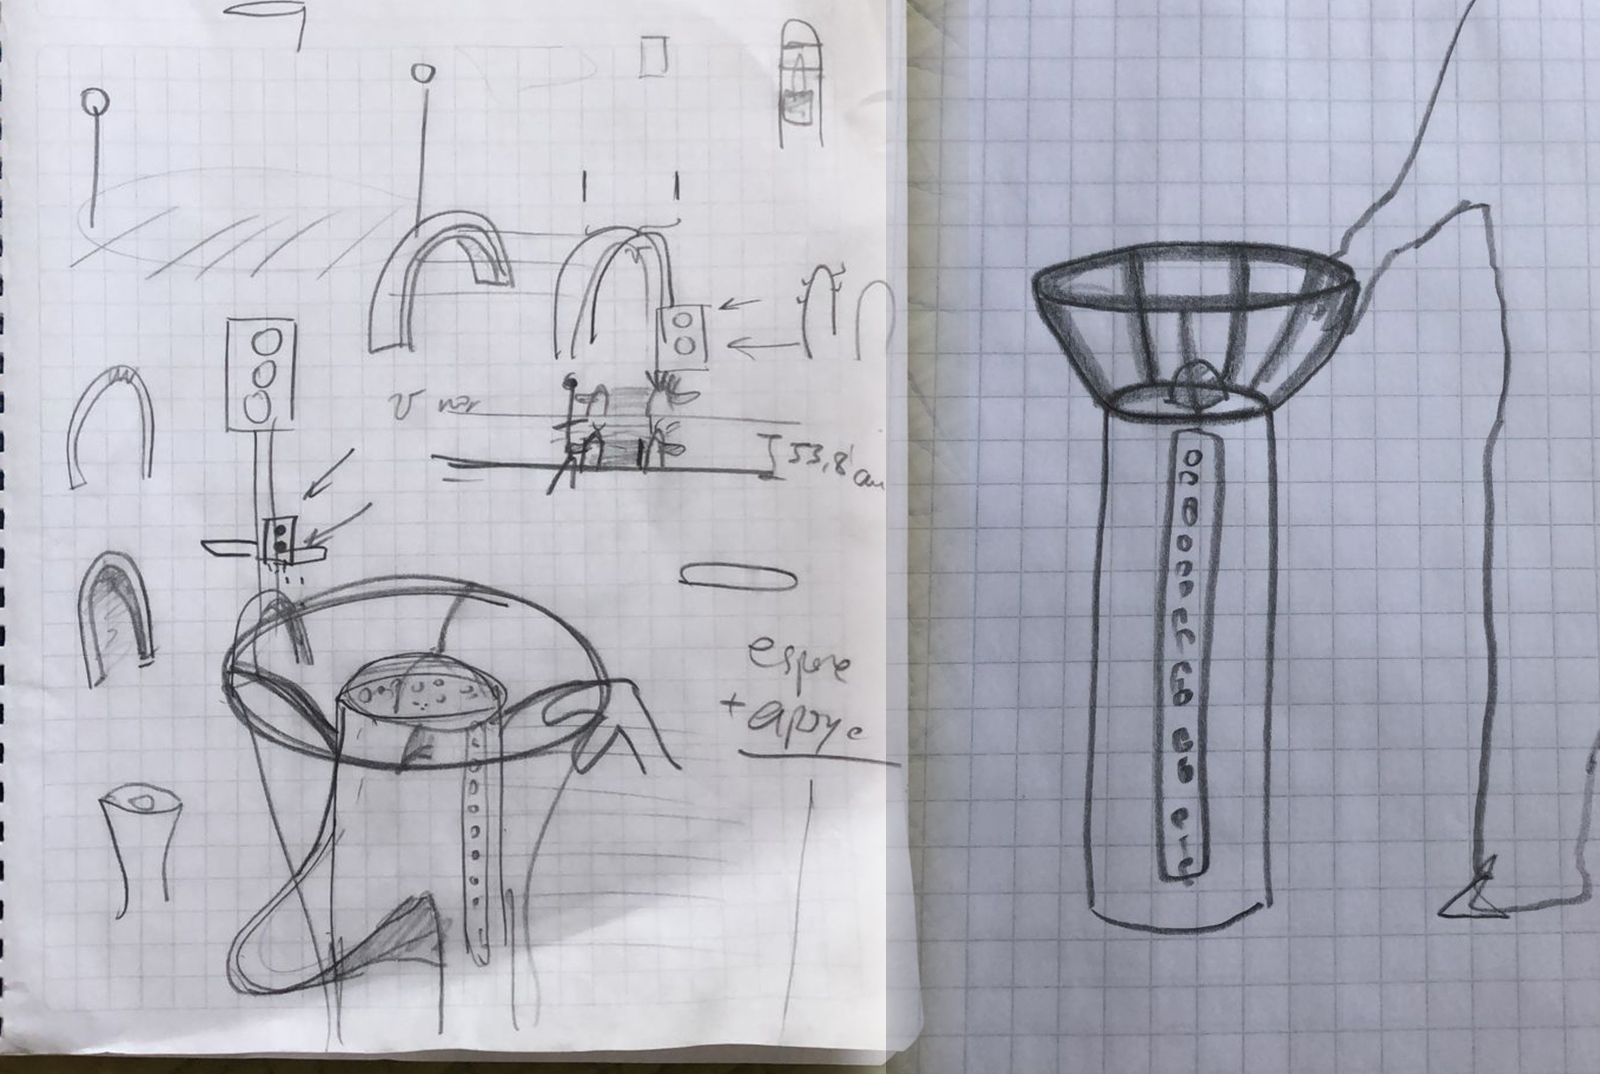 53,8 cm
espere
+ apoye